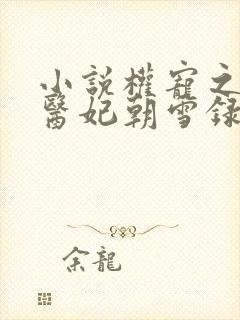 小說權寵之
醫妃朝雪録
余龍